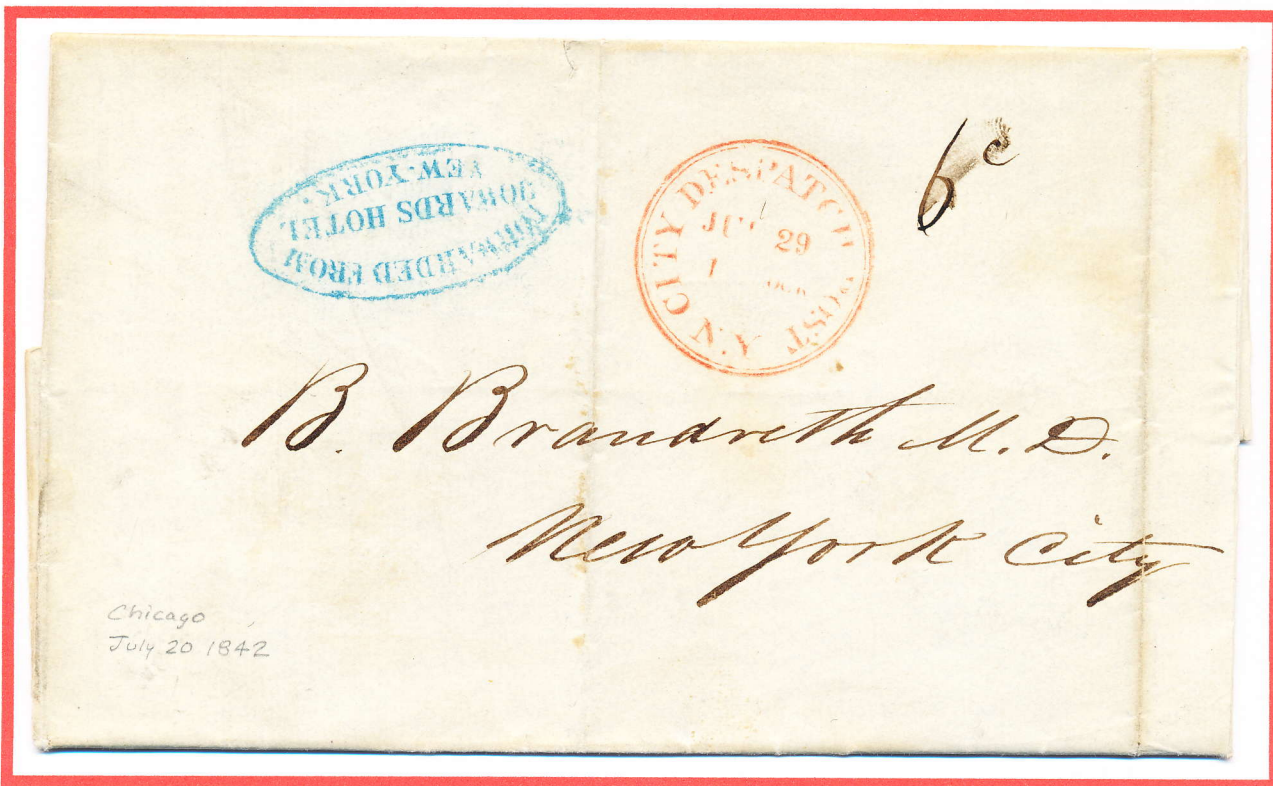 FORWARDED FROM
HOWARDS HOTEL
NEW-YORK.
CITY DESPATCH POST N.Y.
29
6c
B. Brandreth M.D.
New York City
Chicago
July 20 1842